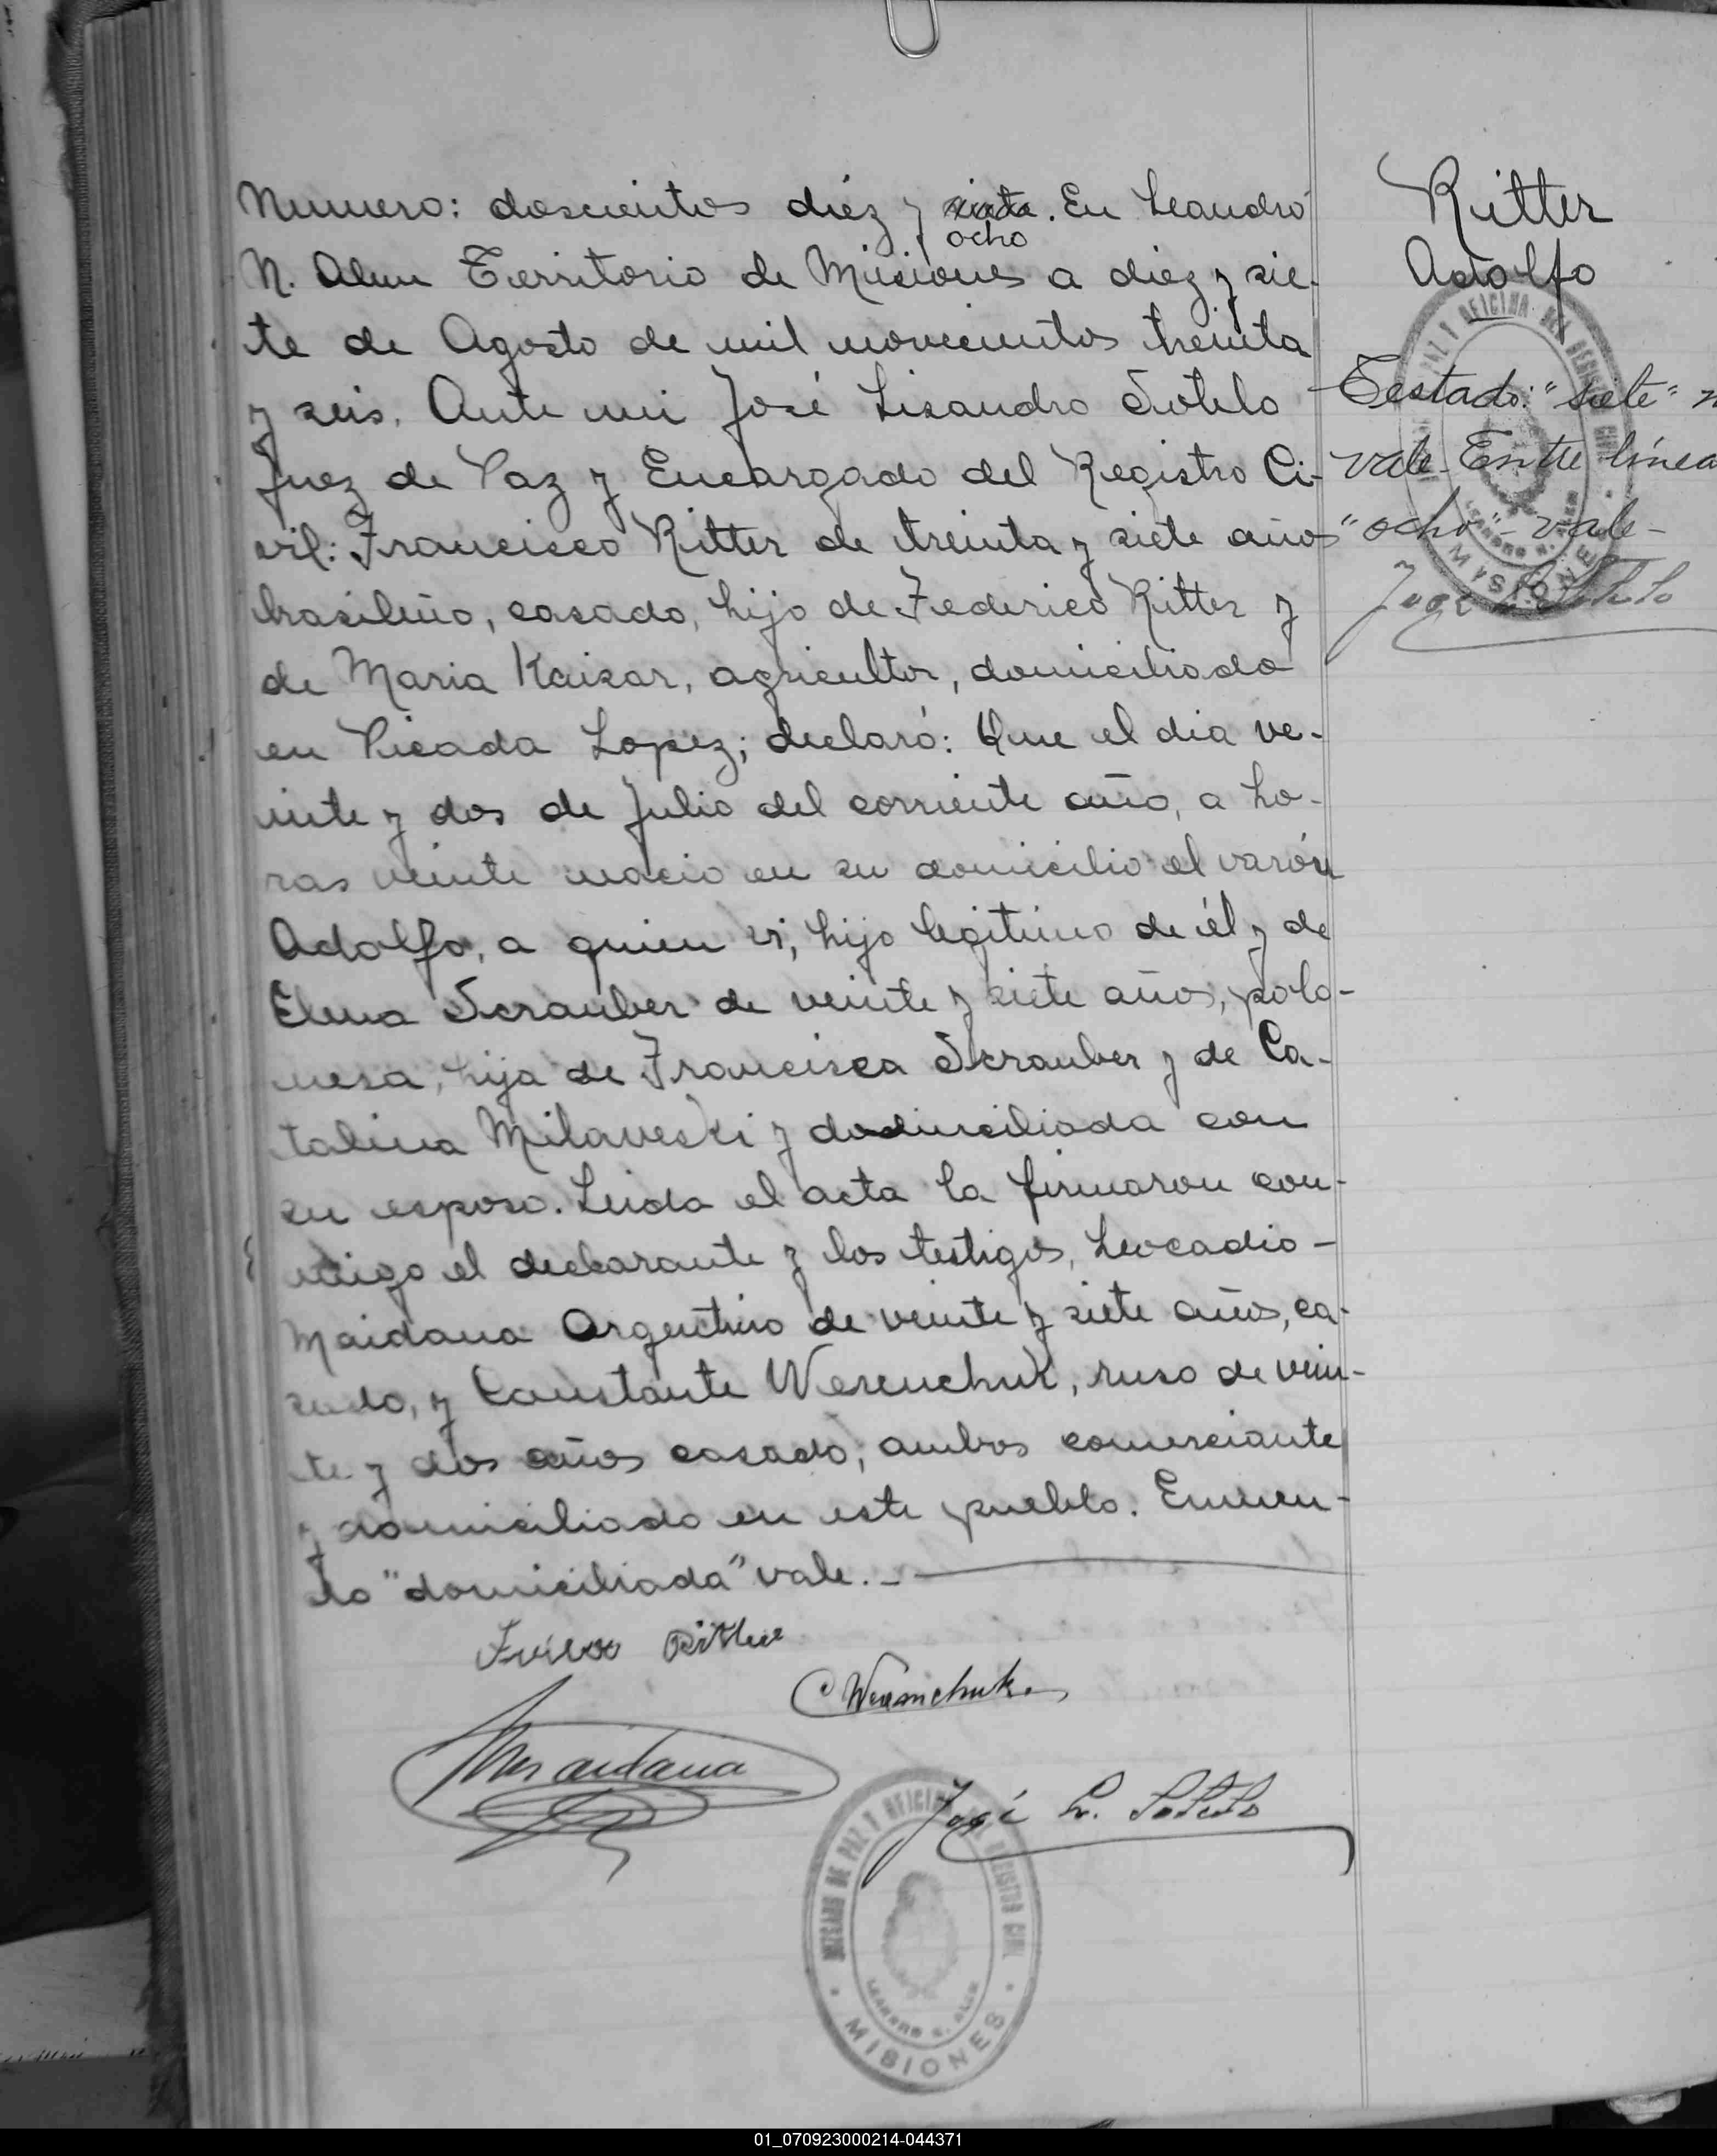 Numero: doscientos diéz y siete. En Leandro
ocho
N. Alem Territorio de Misiones a diez y sie-
te de Agosto de mil novecientos treinta
y seis. Ante mi José Lisandro Sotelo
Juez de Paz y Encargado del Registro Ci-
vil: Francisco Ritter de treinta y siete años
brasileño, casado, hijo de Federico Ritter y
de Maria Kaisar, agricultor, domiciliado
en Picada Lopez; declaró: Que el dia ve-
inte y dos de Julio del corriente año, a ho-
ras veinte nacio en su domicilio el varón
Adolfo, a quien vi, hijo legitimo de él y de
Elena Scrauber de veinte y siete años, pola-
nesa, hija de Francisca Scrauber y de Ca-
talina Milaveski y domiciliada con
su esposo. Leida el acta la firmaron con-
migo el declarante y los testigos, Leocadio-
Maidana Argentino de veinte y siete años, ca-
sado, y Constante Werenchuk, ruso de vein-
te y dos años casado, ambos comerciante
y domiciliado en este pueblo. Enmen-
do "domiciliada" vale.-
Ritter
C Weremchuk.
Maidana
José L. Sotelo
JUZGADO DE PAZ Y OFICINA DEL REGISTRO CIVIL
LEANDRO N. ALEM
MISIONES
Ritter
Adolfo
Testado: "siete" n
vale- Entre línea
"ocho"- vale-
José L. Sotelo
PAZ Y OFICINA DEL REGISTRO CIVIL
LEANDRO N. ALEM
MISIONES
01_070923000214-044371